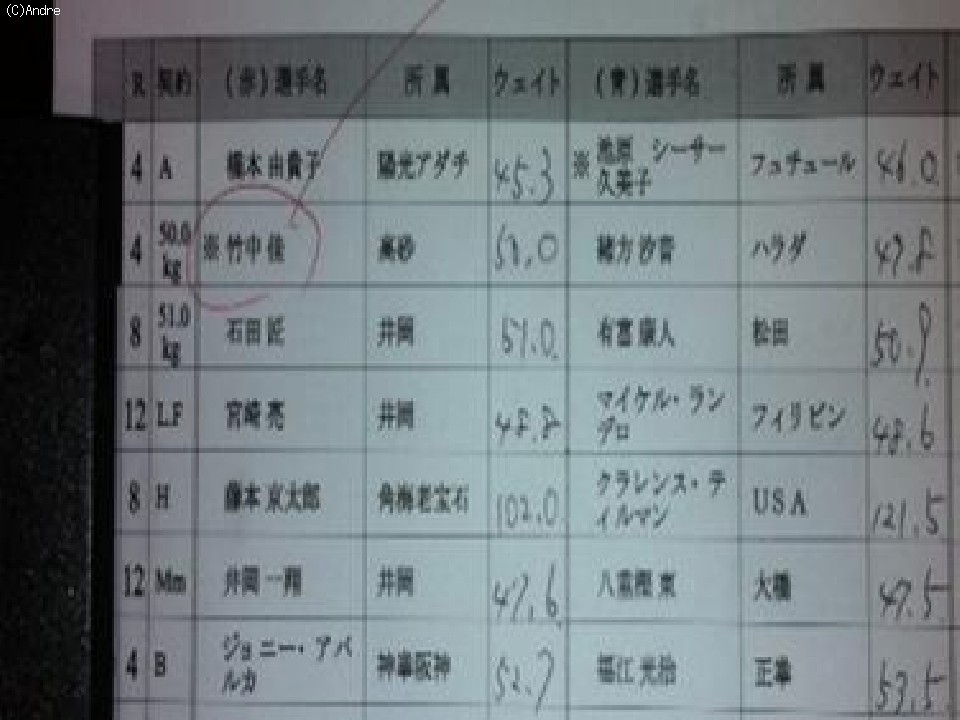 (C)Andre
R 契約 (赤)選手名 所属 ウェイト (青)選手名 所属 ウェイト
4 A 橋本 由貴子 陽光アダチ 45.3 ※ 池原 シーサー 久美子 フュチュール 46.0
4 50.0 kg ※ 竹中 佳 高砂 50.0 緒方 汐音 ハラダ 47.8
8 51.0 kg 石田 匠 井岡 51.0 有富 康人 松田 50.9
12 L.F 宮崎 亮 井岡 48.8 マイケル・ランダロ フィリピン 48.6
8 H 藤本 京太郎 角海老宝石 102.0 クラレンス・ティルマン USA 121.5
12 Mm 井岡 一翔 井岡 47.6 八重樫 東 大橋 47.5
4 B ジョニー・アバルカ 神拳阪神 52.7 福江 光治 正拳 53.5